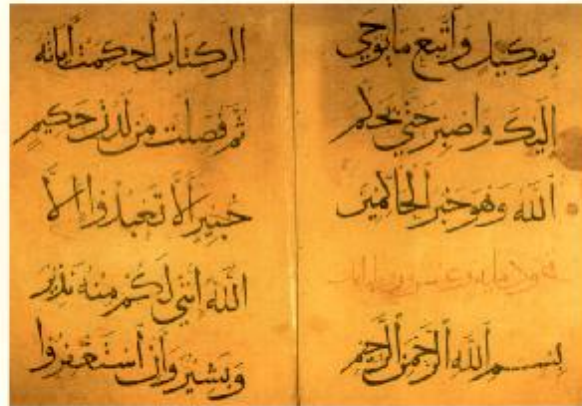 بوكيل واتبع ما يوحى
اليك واصبر حتى يحكم
الله وهو خير الحاكمين
بسم الله الرحمن الرحيم
الر كتاب أحكمت آياته
ثم فصلت من لدن حكيم
خبير ألا تعبدوا إلا
الله انني لكم منه نذير
وبشير وأن استغفروا